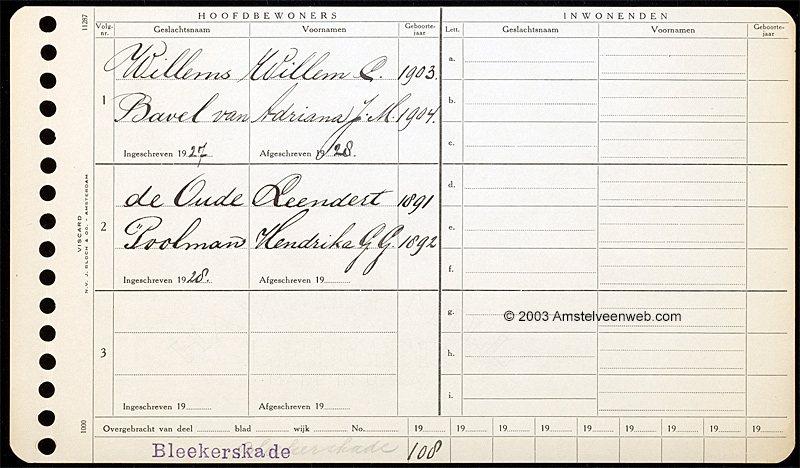 HOOFDBEWONERS
INWONENDEN
11287
Volg-nr. Geslachtsnaam Voornamen Geboorte-jaar
Lett. Geslachtsnaam Voornamen Geboorte-jaar
1
Willems Willem C. 1903.
Bavel van Adriana J. M. 1904.
Ingeschreven 1927 Afgeschreven 1928.
a.
b.
c.
2
de Oude Leendert 1891
Poolman Hendrika G. G. 1892
Ingeschreven 1928. Afgeschreven 19
d.
e.
f.
VISCARD
N.V. J. BLOCH & CO. - AMSTERDAM
3
Ingeschreven 19 Afgeschreven 19
g.
h.
i.
© 2003 Amstelveenweb.com
1000
Overgebracht van deel blad wijk No. 19 19 19 19 19 19 19 19 19
Bleekerskade Bleekerskade 108